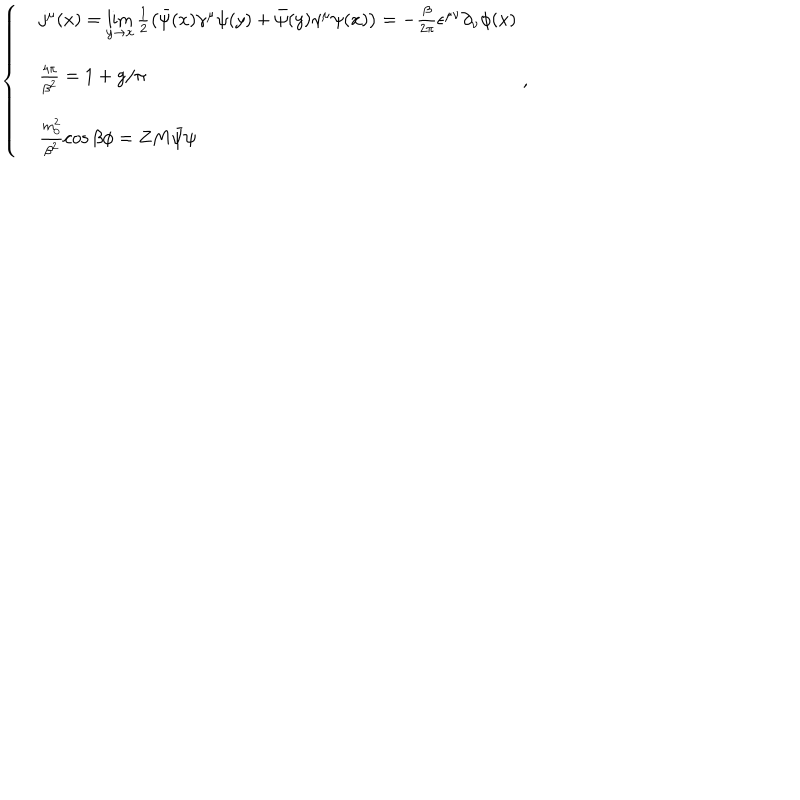 \left\{ \begin{array}{l} j^{\mu}(x) = \lim_{y \to x} \frac{1}{2} (\bar{\psi}(x) \gamma^{\mu} \psi(y) + \bar{\psi}(y) \gamma^{\mu} \psi(x)) = -\frac{\beta}{2\pi} \epsilon^{\mu\nu} \partial_{\nu} \phi(x) \\
\frac{4\pi}{\beta^2} = 1 + g/\pi \\
\frac{m_0^2}{\beta^2} \cos \beta\phi = Z M \bar{\psi} \psi \end{array} \right. ,